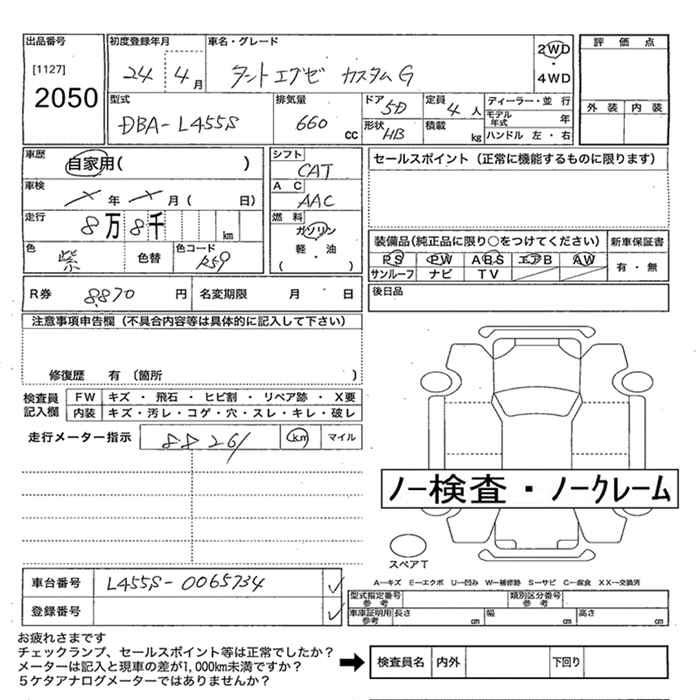 出品番号
[1127]
2050
初度登録年月
24 4月
車名・グレード
タントエグゼ カスタムG
2WD
・
4WD
評価点
外装 内装
型式
DBA-L455S
排気量
660 cc
ドア 5D
形状 HB
定員 4人
積載 kg
ディーラー・並 行
モデル年式 年
ハンドル 左・右
車歴
自家用( )
車検
年 月( 日)
走行
8万8千 km
色
紫
色替
色コード
R59
シフト
CAT
AC
AAC
燃料
ガソリン
軽・油
( )
セールスポイント(正常に機能するものに限ります)
装備品(純正品に限り○をつけてください)
新車保証書
PS PW ABS エアB AW
サンルーフ ナビ TV
有・無
R券 8,870 円
名変期限 月 日
後日品
注意事項申告欄(不具合内容等は具体的に記入して下さい)
修復歴 有〔箇所 )
検査員記入欄
FW キズ・飛石・ヒビ割・リペア跡・X要
内装 キズ・汚レ・コゲ・穴・スレ・キレ・破レ
走行メーター指示
88261 km マイル
ノー検査・ノークレーム
スペアT
A―キズ E―エクボ U―凹み W―補修跡 S―サビ C―腐食 XX―交換済
車台番号
L455S-0065734
登録番号
型式指定番号 参考
類別区分番号 参考
車庫証明用 参考
長さ cm 幅 cm 高さ cm
お疲れさまです
チェックランプ、セールスポイント等は正常でしたか?
メーターは記入と現車の差が1,000km未満ですか?
5ケタアナログメーターではありませんか?
検査員名 内外 下回り